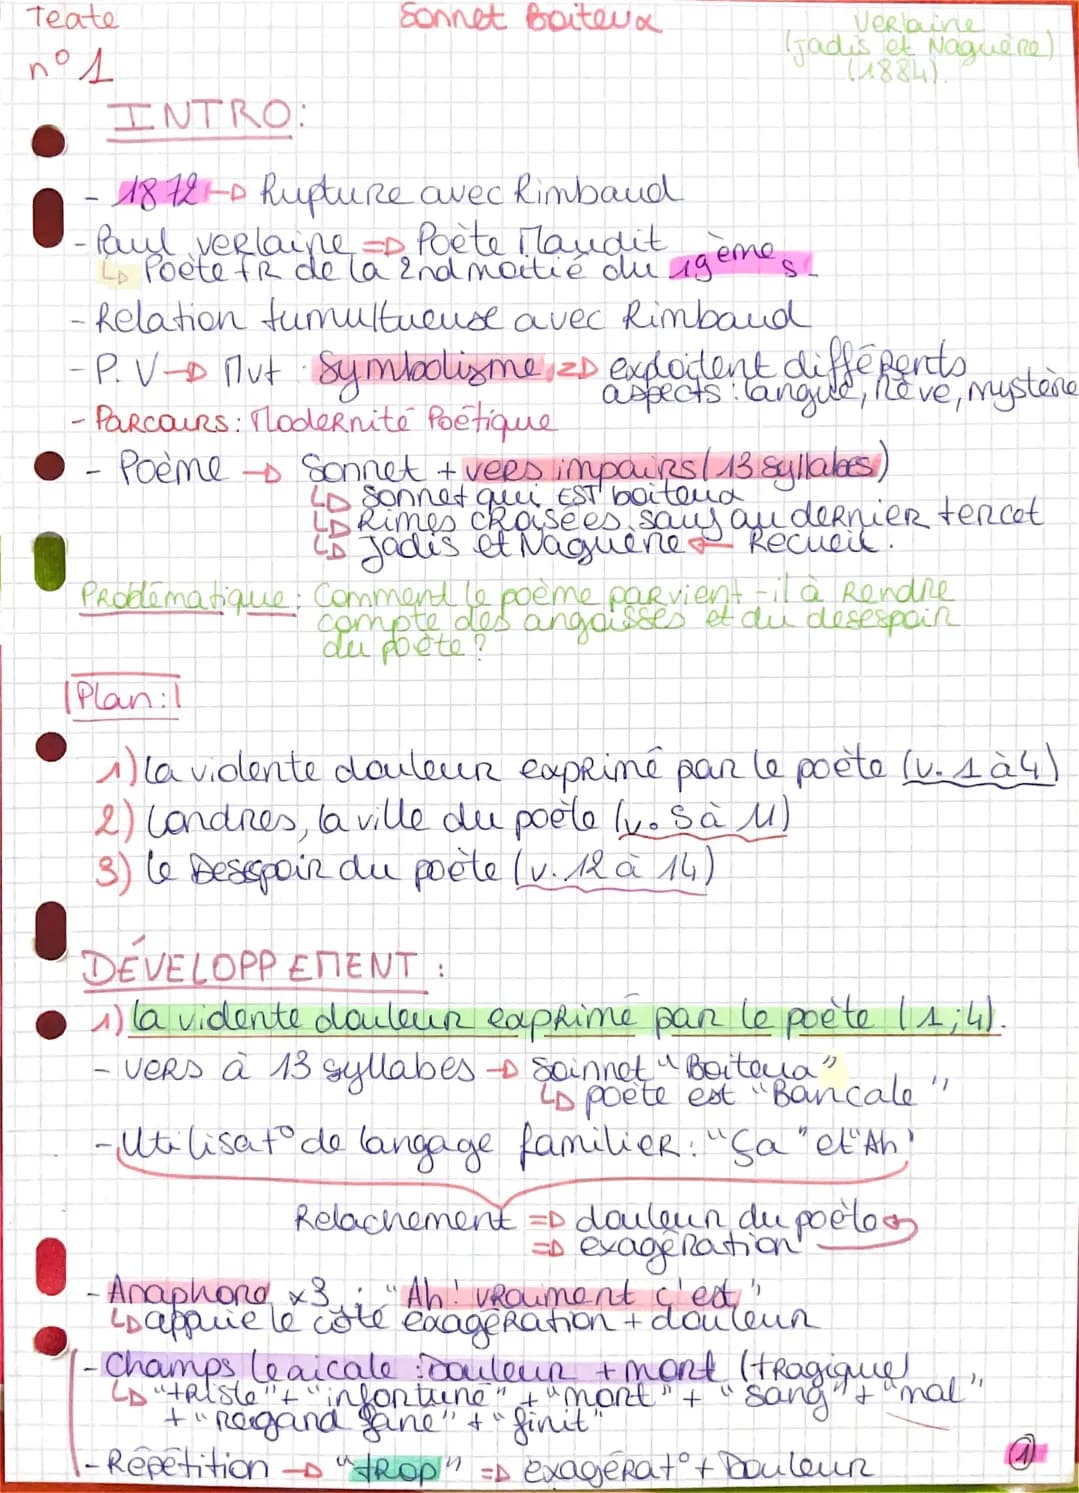 Texte
n° 1
Sonnet Boiteux
Verlaine
(Jadis et Naguère)
(1884).
INTRO:
- 1872 → Rupture avec Rimbaud
- Paul verlaine => Poète Maudit
↳ Poète fR de la 2nd moitié du 19ème s.
- Relation tumultueuse avec Rimbaud
- P. V → Mvt Symbolisme => exploitent différents
aspects : langue, rêve, mystère
- Parcours : Modernité Poétique
- Poème → Sonnet + vers impairs (13 syllabes)
↳ Sonnet qui EST boiteux
↳ Rimes croisées sauf au dernier tercet
↳ Jadis et Naguère ← Recueil.
Problématique : Comment le poème parvient-il à Rendre
compte des angoisses et du desespoir
du poète ?
Plan :
1) la violente douleur exprimé par le poète (v. 1 à 4)
2) Londres, la ville du poète (v. 5 à 11)
3) le Desespoir du poète (v. 12 à 14)
DÉVELOPPEMENT :
1) la violente douleur exprimé par le poète (1;4).
- vers à 13 syllabes → Soinnet "Boiteux"
↳ poète est "Bancale"
- Utilisat° de langage familier : "Ça" et "Ah"
Relachement => douleur du poète
=> exagération
- Anaphore x3 : "Ah! vraiment c'est"
↳ appuie le côté exagération + douleur
- Champs lexicale : Douleur + mort (tragique)
↳ "triste" + "infortuné" + "mort" + "sang" + "mal"
+ "regard fané" + "finit"
- Répétition → "trop" => exagérat° + Douleur
1